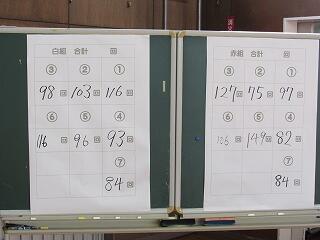 白組 合計 回
③ ② ①
98回 103回 116回
⑥ ⑤ ④
116回 96回 93回
⑦
84回
赤組 合計 回
③ ② ①
127回 75回 97回
⑥ ⑤ ④
106回 149回 82回
⑦
84回